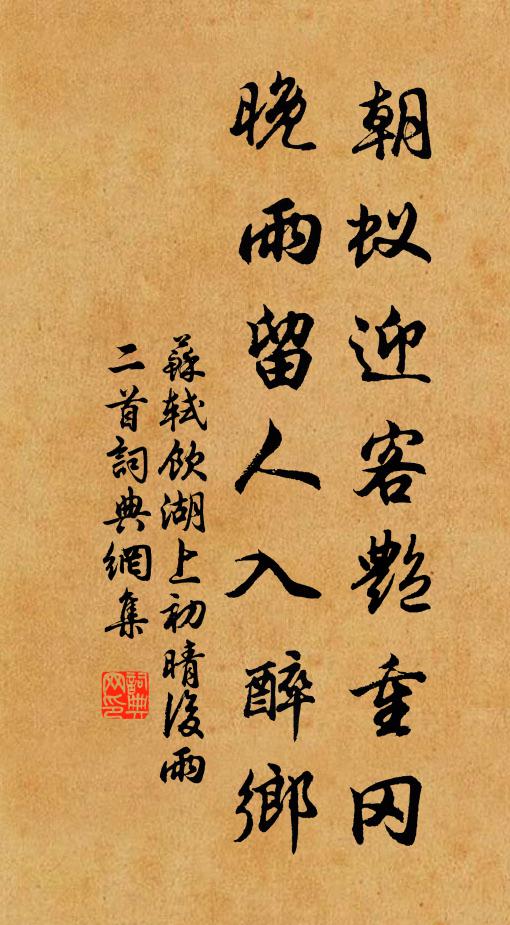 朝蚁迎客艷重冈
晚雨留人入醉鄉
蘇軾飲湖上初晴後雨
二首詞典網集
詞典
网印